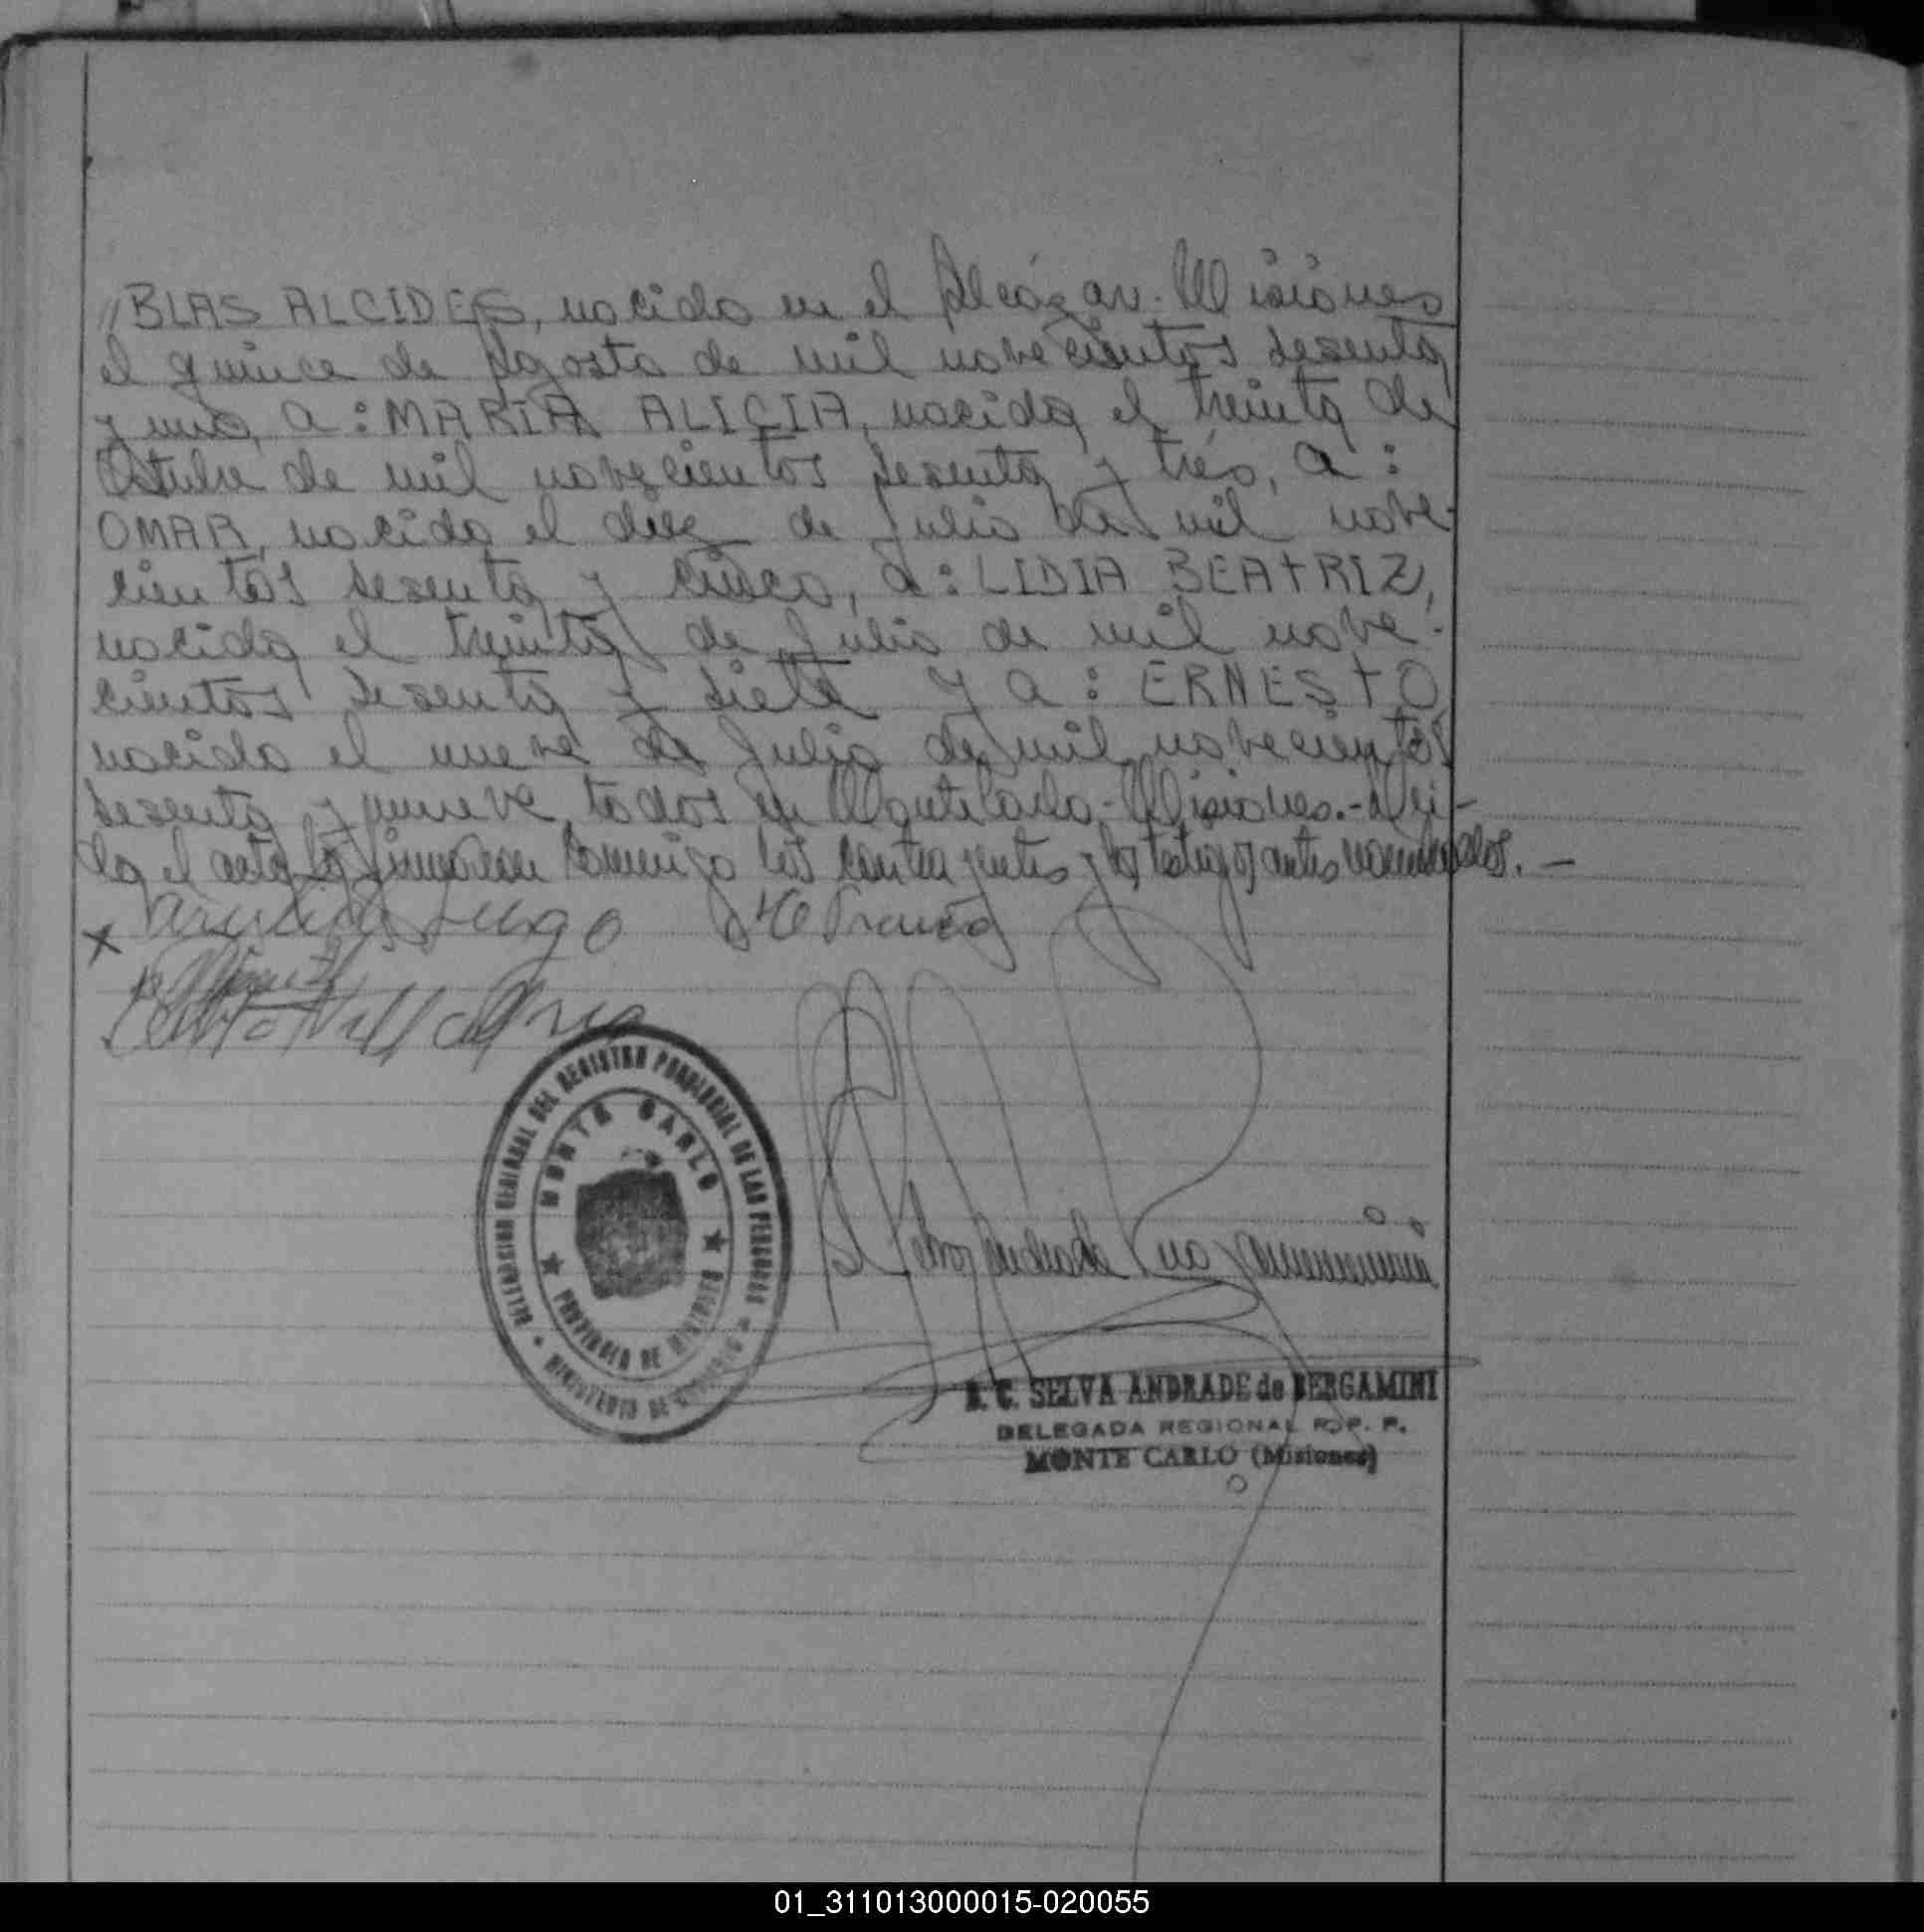 // BLAS ALCIDES, nacido en el Alcázar. Misiones
el quince de Agosto de mil novecientos sesenta
y uno, a: MARIA ALICIA, nacida el treinta de
Octubre de mil novecientos sesenta y trés, a:
OMAR, nacido el diez de Julio de mil nove-
cientos sesenta y cinco, a: LIDIA BEATRIZ,
nacida el treinta de Julio de mil nove-
cientos sesenta y siete y a: ERNESTO
nacido el nueve de Julio de mil novecientos
sesenta y nueve, todos en Montecarlo-Misiones.- Leí-
da el acta la firmaron conmigo los contrayentes y los testigos antes nombrados. -
x Lugo
DELEGACION REGIONAL DEL REGISTRO PROVINCIAL DE LAS PERSONAS
MONTE CARLO
PROVINCIA DE MISIONES
MINISTERIO DE GOBIERNO
Selva Andrade
S. C. SELVA ANDRADE de BERGAMINI
DELEGADA REGIONAL R. P. P.
MONTE CARLO (Misiones)
01_311013000015-020055